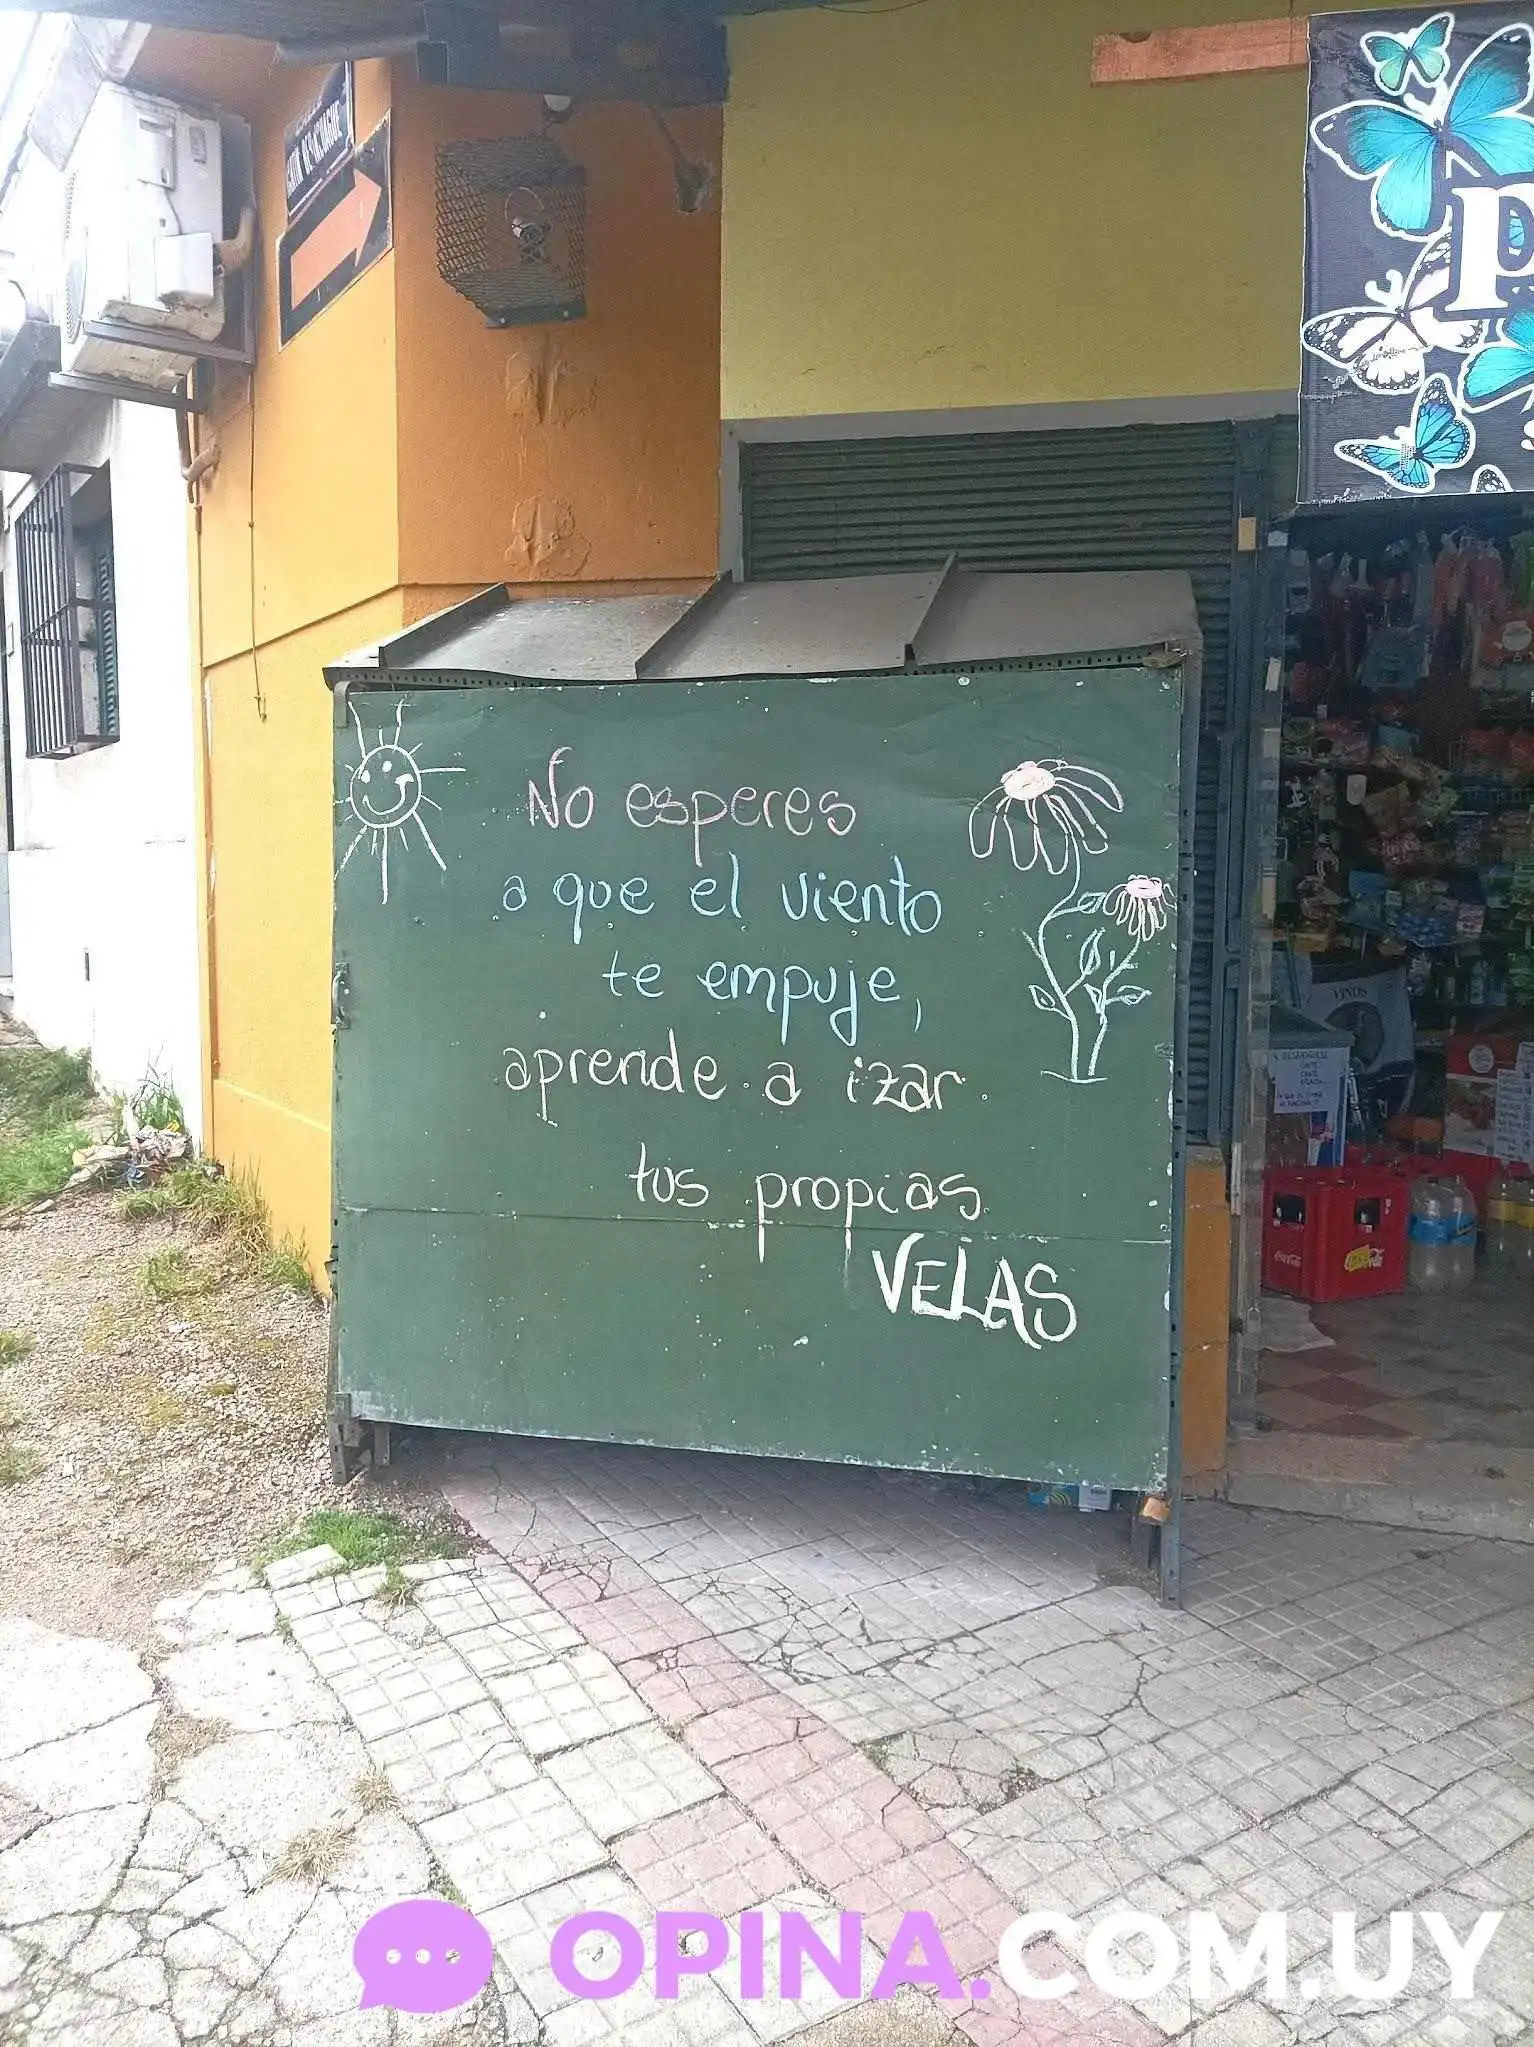 No esperes
a que el viento
te empuje,
aprende a izar
tus propias
VELAS
p
VINOS
Coca-Cola
OPINA.COM.UY